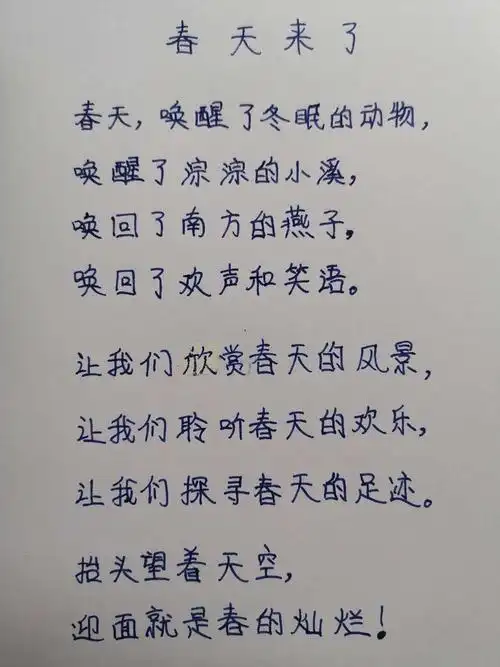 春天来了
春天，唤醒了冬眠的动物，
唤醒了淙淙的小溪，
唤回了南方的燕子，
唤回了欢声和笑语。
让我们欣赏春天的风景，
让我们聆听春天的欢乐，
让我们探寻春天的足迹。
抬头望着天空，
迎面就是春的灿烂！